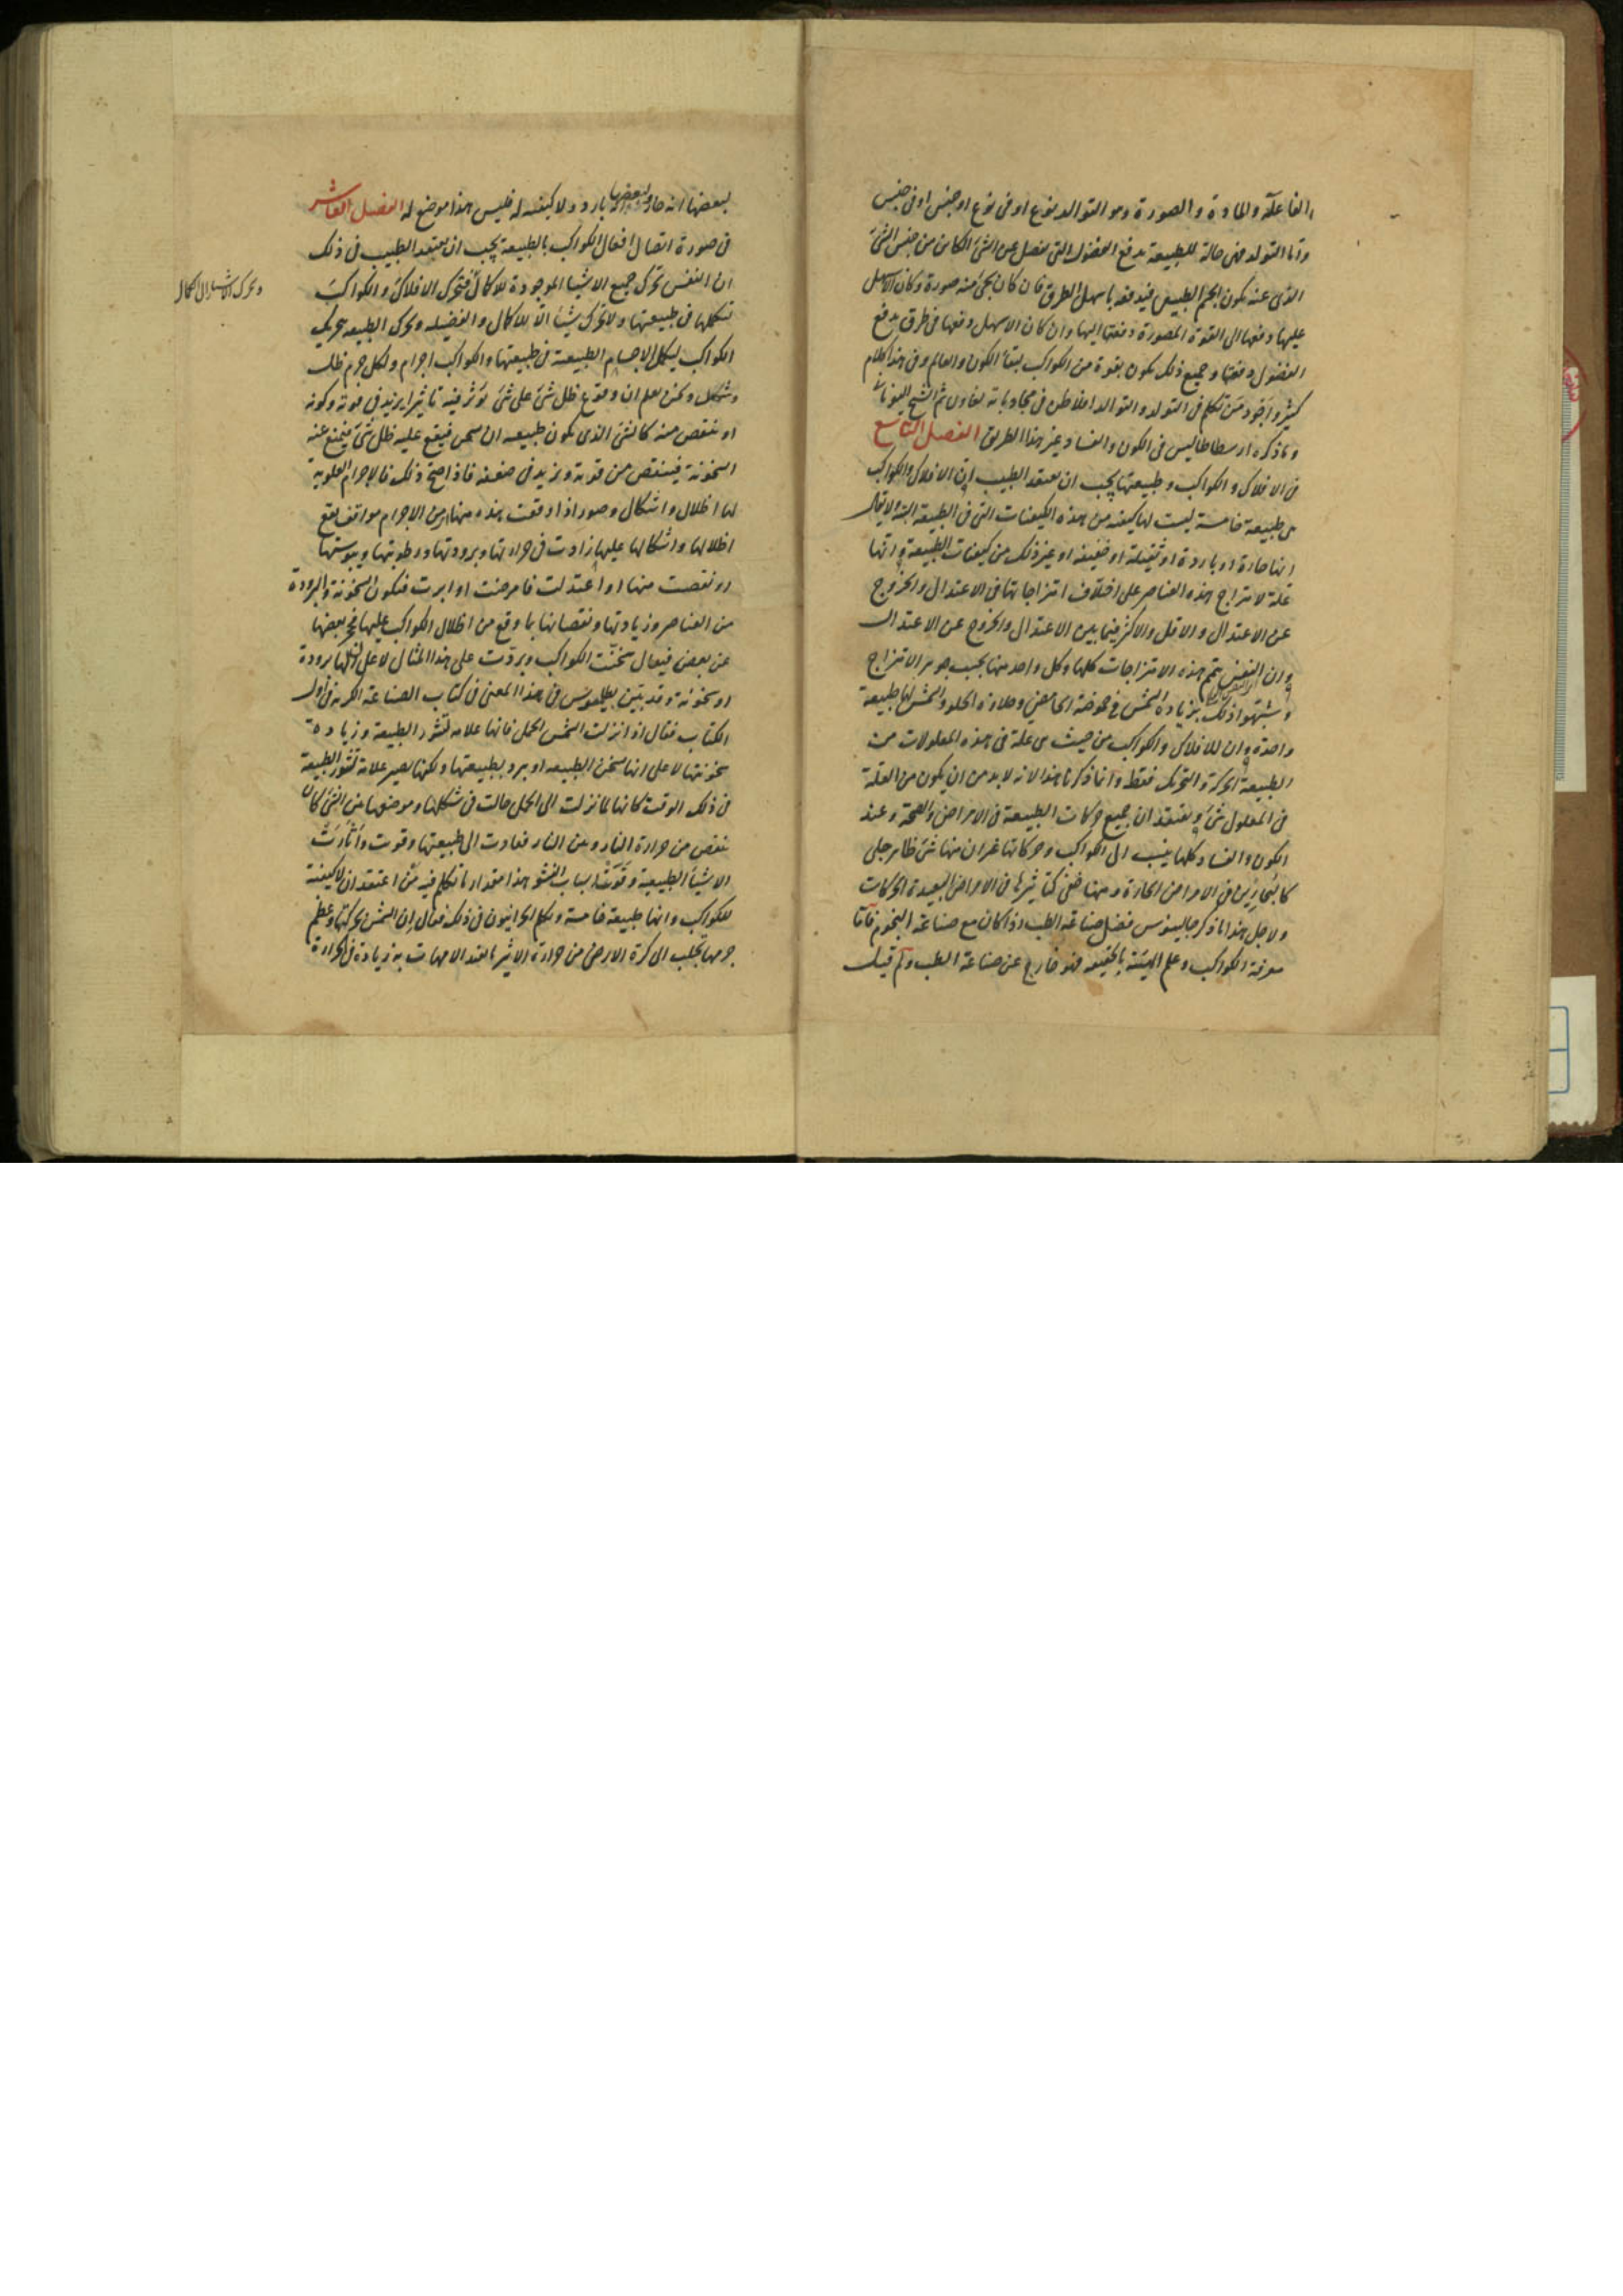 الفاعلة والمادة والصورة وهو التوالد بنوع او فى نوع او جنس او فى جنس
واما التولد فهى حالة للطبيعة تدفع الفضول التى تفصل عن الشئ الكائن من جنس الشئ
الذى عنه يكون الجسم الطبيعى فيدفعه باسهل الطرق فان كان يجئ منه صورة وكان الاسهل
عليها دفعها الى القوة المصورة دفعتها اليها وان كان الاسهل دفعها فى طرق تدفع
الفضول دفعتها وجميع ذلك يكون بقوة من الكواكب لبقاء الكون والعالم وفى هذا كلام
كثير واجود من تكلم فى التولد والتوالد افلاطن فى محاورته ثم الشيخ اليونانى
وما ذكره ارسطاطاليس فى الكون والفساد غير هذا الطريق الفصل التاسع
فى الافلاك والكواكب وطبيعتها يجب ان يعتقد الطبيب ان الافلاك والكواكب
هى طبيعة خامسة ليست لها كيفية من هذه الكيفيات التى فى الطبيعة البتة لا يقال
انها حارة او باردة او ثقيلة او خفيفة او غير ذلك من كيفيات الطبيعة وانها
علة لامتزاج هذه العناصر على اختلاف امتزاجاتها فى الاعتدال والخروج
عن الاعتدال والاقل والاكثر فيما بين الاعتدال والخروج عن الاعتدال
وان النفس تتم هذه الامتزاجات كلها وكل واحد منها بحسب جوهر الامتزاج
وشبهوا ذلك بزيادة الشمس فى حموضة الحامض وحلاوة الحلو والشمس لها طبيعة
واحدة وان للافلاك والكواكب من حيث هى علة فى هذه المعلولات من
الطبيعة الحركة والتحريك فقط وانما ذكرنا هذا لانه لا بد من ان يكون من العلة
فى المعلول شئ ويعتقد ان جميع حركات الطبيعة فى الامراض والصحة وعند
الكون والفساد كلها ينسب الى الكواكب وحركاتها غير ان منها شئ ظاهر جلى
كالبحارين فى الامراض الحادة ومنها خفى كتأثيرها فى الامراض البعيدة الحركات
ولاجل هذا ما ذكر جالينوس فضل صناعة الطب اذا كان مع صناعة النجوم فاما
معرفة الكواكب وعلم الهيئة بالحقيقة فهو خارج عن صناعة الطب ولم قيل
لبعضها انه حار ولبعضها بارد ولا كيفية له فليس هذا موضع له الفصل العاشر
فى صورة اتصال افعال الكواكب بالطبيعة يجب ان يعتقد الطبيب فى ذلك
ان النفس تحرك جميع الاشياء الموجودة للاكمال فتحرك الافلاك والكواكب
وتحرك الاشياء الى الكمال
تكملها فى طبيعتها ولا تحرك شيئا الا للاكمال والفضيلة وتحرك الطبيعة بتحريك
الكواكب ليكمل الاجسام الطبيعية فى طبيعتها والكواكب اجرام ولكل جرم ظل
وشكل ونحن نعلم ان وقوع ظل شئ على شئ يؤثر فيه تاثيرا يزيد فى قوته وكونه
او ينقص منه كالشئ الذى يكون طبيعته ان يسخن فيقع عليه ظل شئ فيمنع عنه
السخونة فينقص من قوته ويزيد فى ضعفه فاذا صح ذلك فالاجرام العلوية
لها اظلال واشكال وصور اذا وقعت هذه من الاجرام مواقف تقع
اظلالها واشكالها عليها زادت فى حرارتها وبرودتها ورطوبتها ويبوستها
او نقصت منها او اعتدلت فامرضت او ابرت فتكون السخونة والبرودة
من العناصر وزيادتها ونقصانها بما وقع من اظلال الكواكب عليها بعضها
عن بعض فيقال سخنت الكواكب وبردت على هذا المثال لا على ان لها برودة
او سخونة وقد بين بطلميوس فى هذا المعنى فى كتاب الصناعة الكرية فى اول
الكتاب فقال اذا نزلت الشمس الحمل فانها علامة نشو الطبيعة وزيادة
سخونتها لا على انها تسخن الطبيعة او تبرد بطبيعتها ولكنها تصير علامة لنشو الطبيعة
فى ذلك الوقت كانها لما نزلت الى الحمل حالت فى شكلها وموضعها بين الشئ كان
ينقص من حرارة النار وبين النار فعادت الى طبيعتها وقويت واثارت
الاشياء الطبيعية وقوت اسباب النشو هذا مقدار ما تكلم فيه من اعتقد ان لا كيفية
للكواكب وانها طبيعة خامسة وتكلم الحرانيون فى ذلك فقال ان الشمس بحركتها وعظم
جرمها تجلب الى كرة الارض من حرارة الاثير ما تفيد الامهات به زيادة فى الحرارة